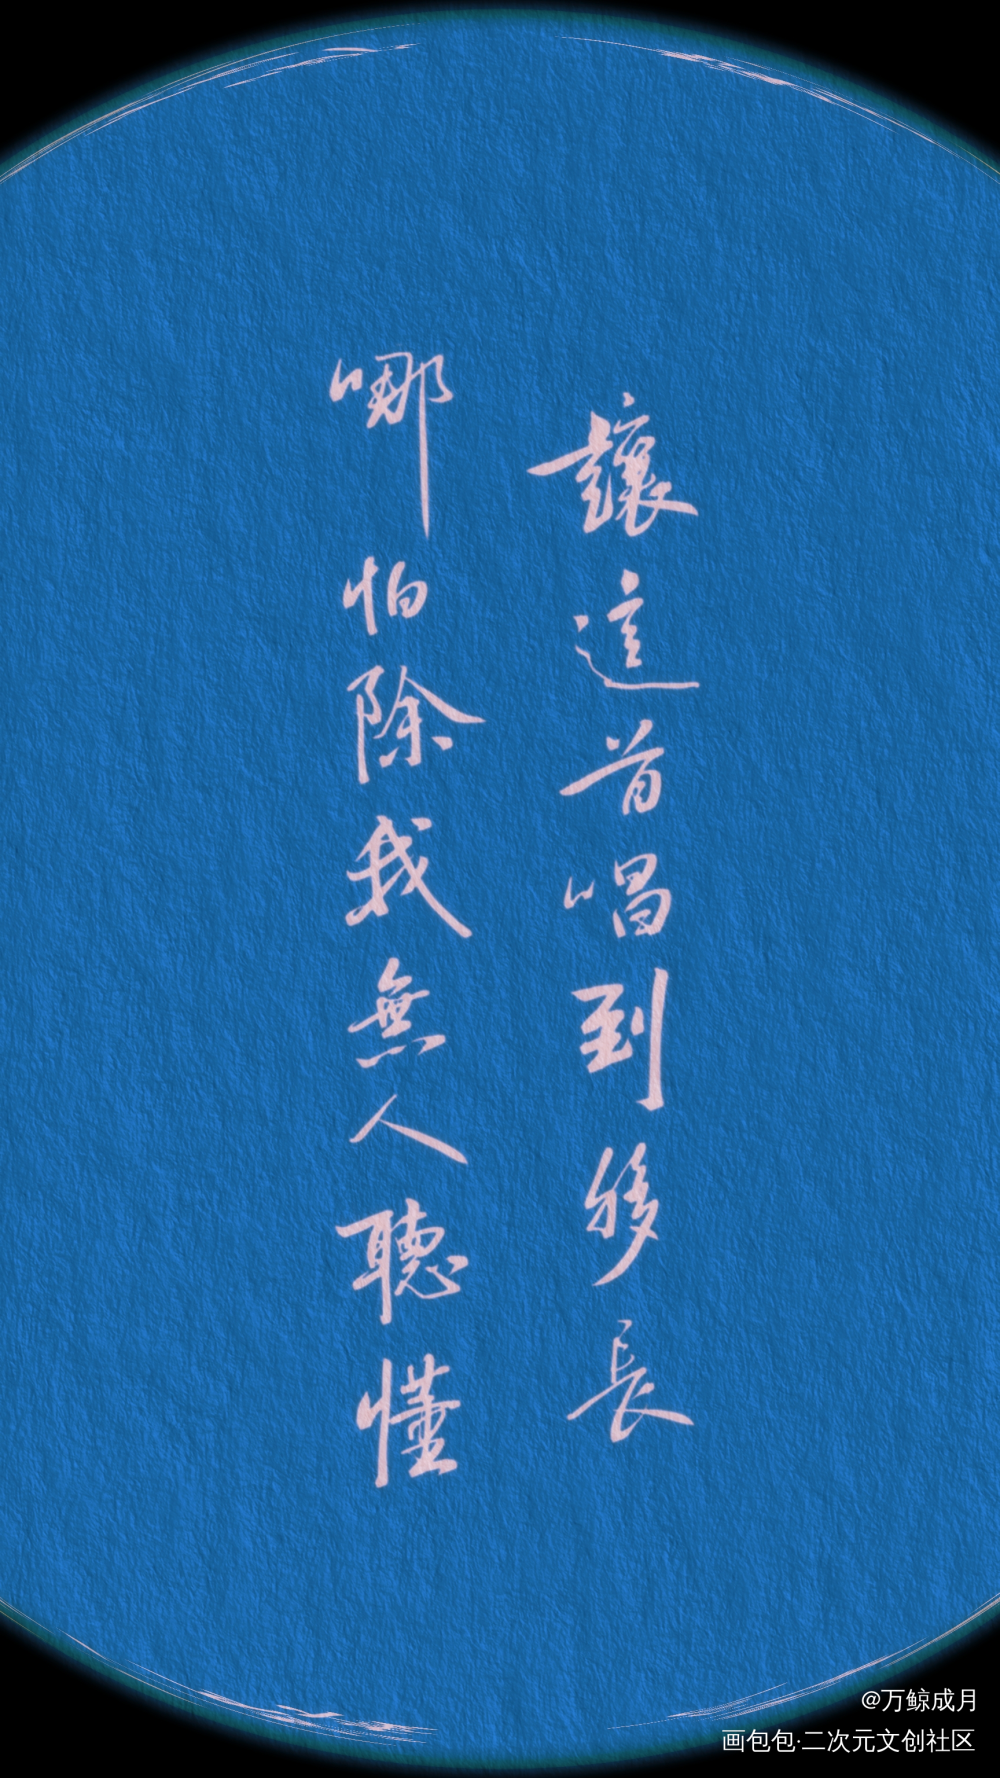 讓這首唱到夠長
哪怕除我無人聽懂
@万鲸成月
画包包·二次元文创社区